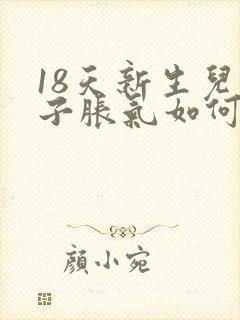 18天新生兒
子脹氣如何
顏小宛